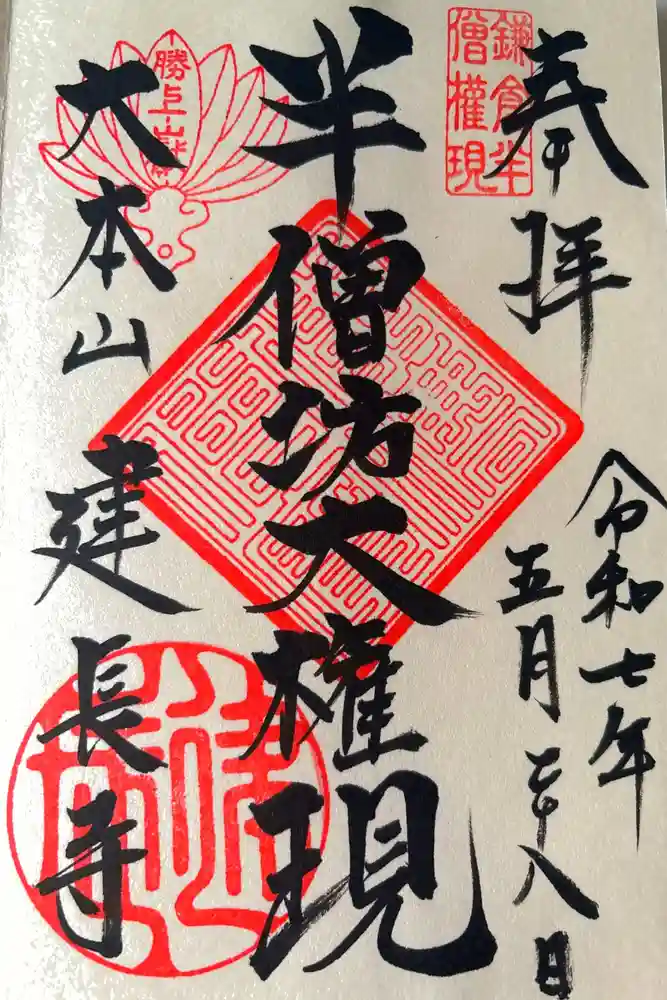 鎌倉半
僧權現
奉拝
令和七年
五月二十八日
半僧坊大権現
大本山 建長寺